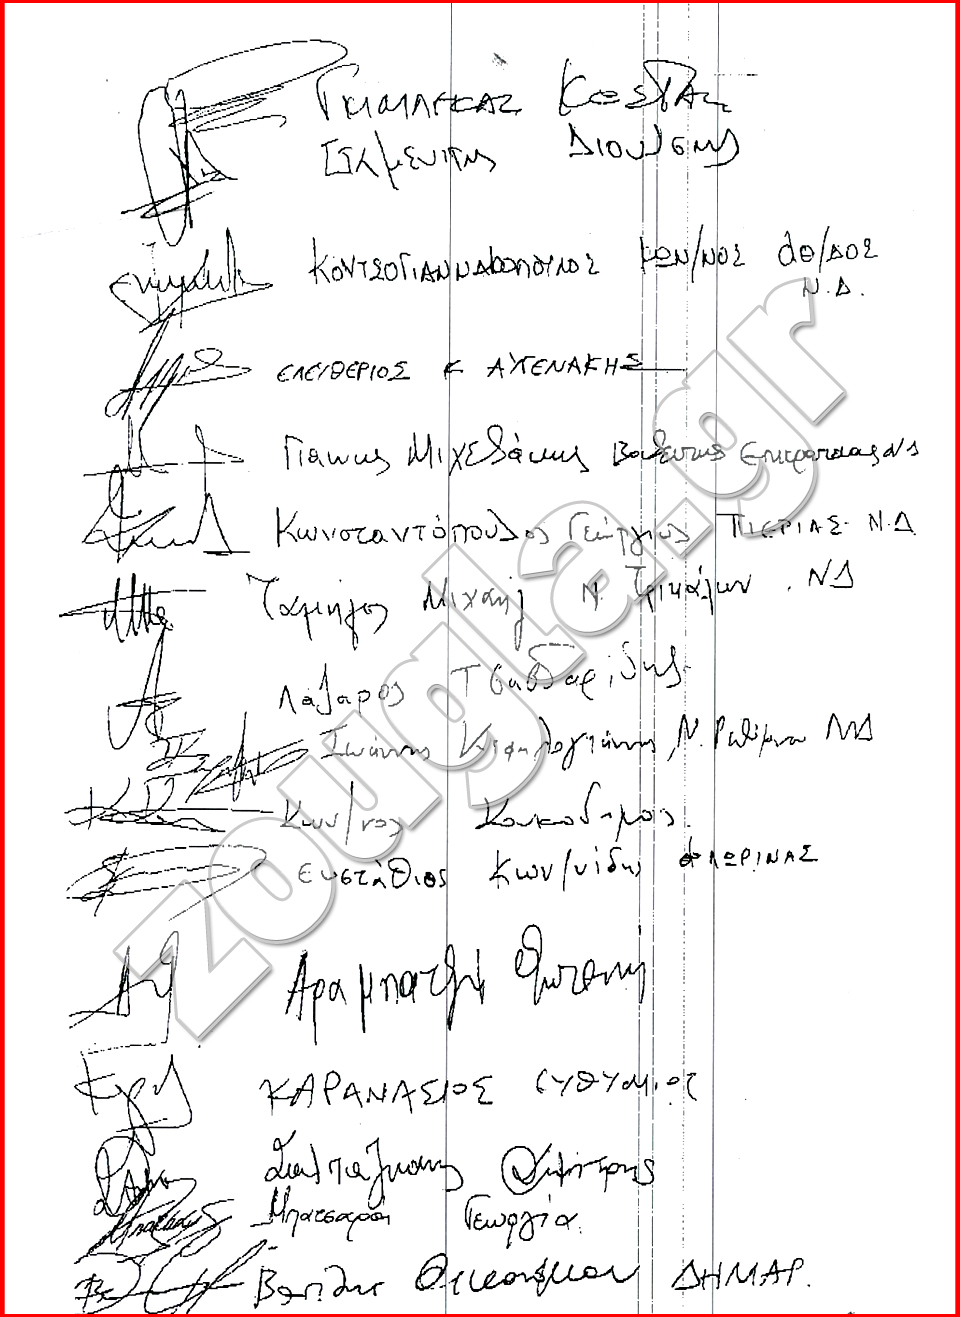 ΓΚΙΟΥΛΕΚΑΣ ΚΩΣΤΑΣ
Σταμενίτης ΔΙΟΝΥΣΗΣ
ΚΟΝΤΣΟΓΙΑΝΝΑΚΟΠΟΥΛΟΣ ΚΩΝ/ΝΟΣ
Ν.Δ.
ΕΛΕΥΘΕΡΙΟΣ Κ ΑΥΓΕΝΑΚΗΣ
Γιάννης Μιχελάκης Βουλευτής Επικρατείας ΝΔ
Κωνσταντόπουλος Γεώργιος ΠΙΕΡΙΑΣ Ν.Δ
Ταμήλος Μιχαήλ Ν. Τρικάλων. ΝΔ
Λάζαρος Τσαβδαρίδης
Ιωάννης Κεφαλογιάννης, Ν. Ρεθύμνου ΝΔ
Κων/νος Κουκοδήμος
ευστάθιος Κων/νίδης ΦΛΩΡΙΝΑΣ
Αραμπατζή Φωτεινή
ΚΑΡΑΝΑΣΙΟΣ ΕΥΘΥΜΙΟΣ
Σαλταούρης Δημήτρης
Μπατσαρά Γεωργία
Βασίλης Οικονόμου ΔΗΜΑΡ.
zougla.gr